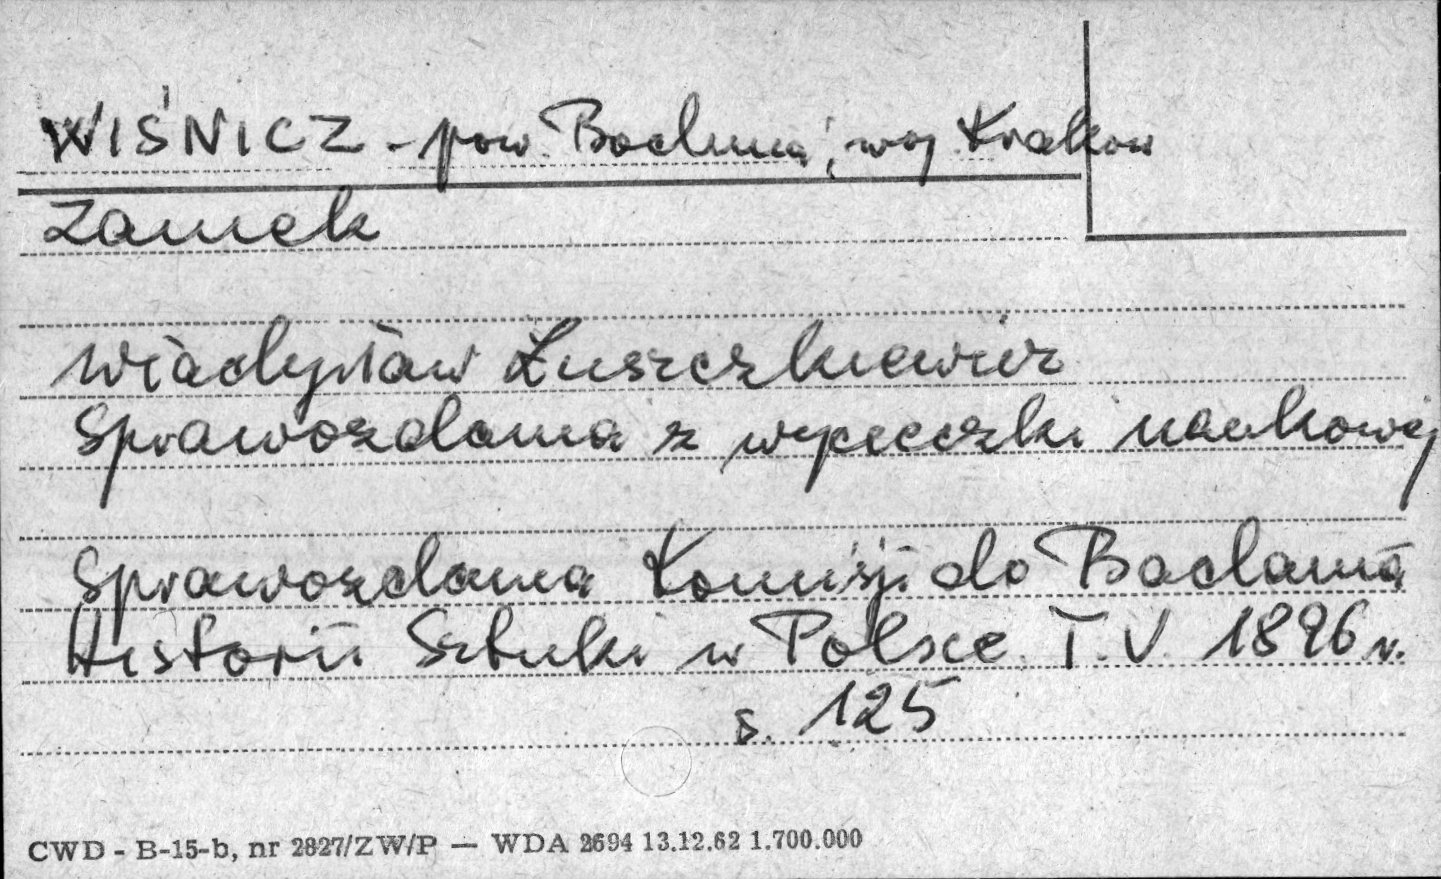 WIŚNICZ - pow. Bochnia, woj. Kraków
Zamek
Władysław Łuszczkiewicz
Sprawozdania z wycieczki naukowej
Sprawozdania Komisji do Badania
Historii Sztuki w Polsce. T. V. 1896 r.
s. 125
CWD - B-15-b, nr 2827/ZW/P — WDA 2694 13.12.62 1.700.000